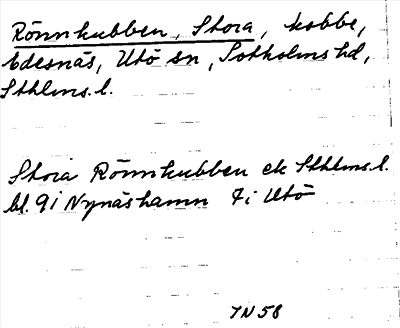 Rönnkubben, Stora, kobbe,
Edesnäs, Utö sn, Sotholms hd,
Sthlms.l.
Stora Rönnkubben ek Sthlms.l.
bl. 9i Nynäshamn 7i Utö
IN 58